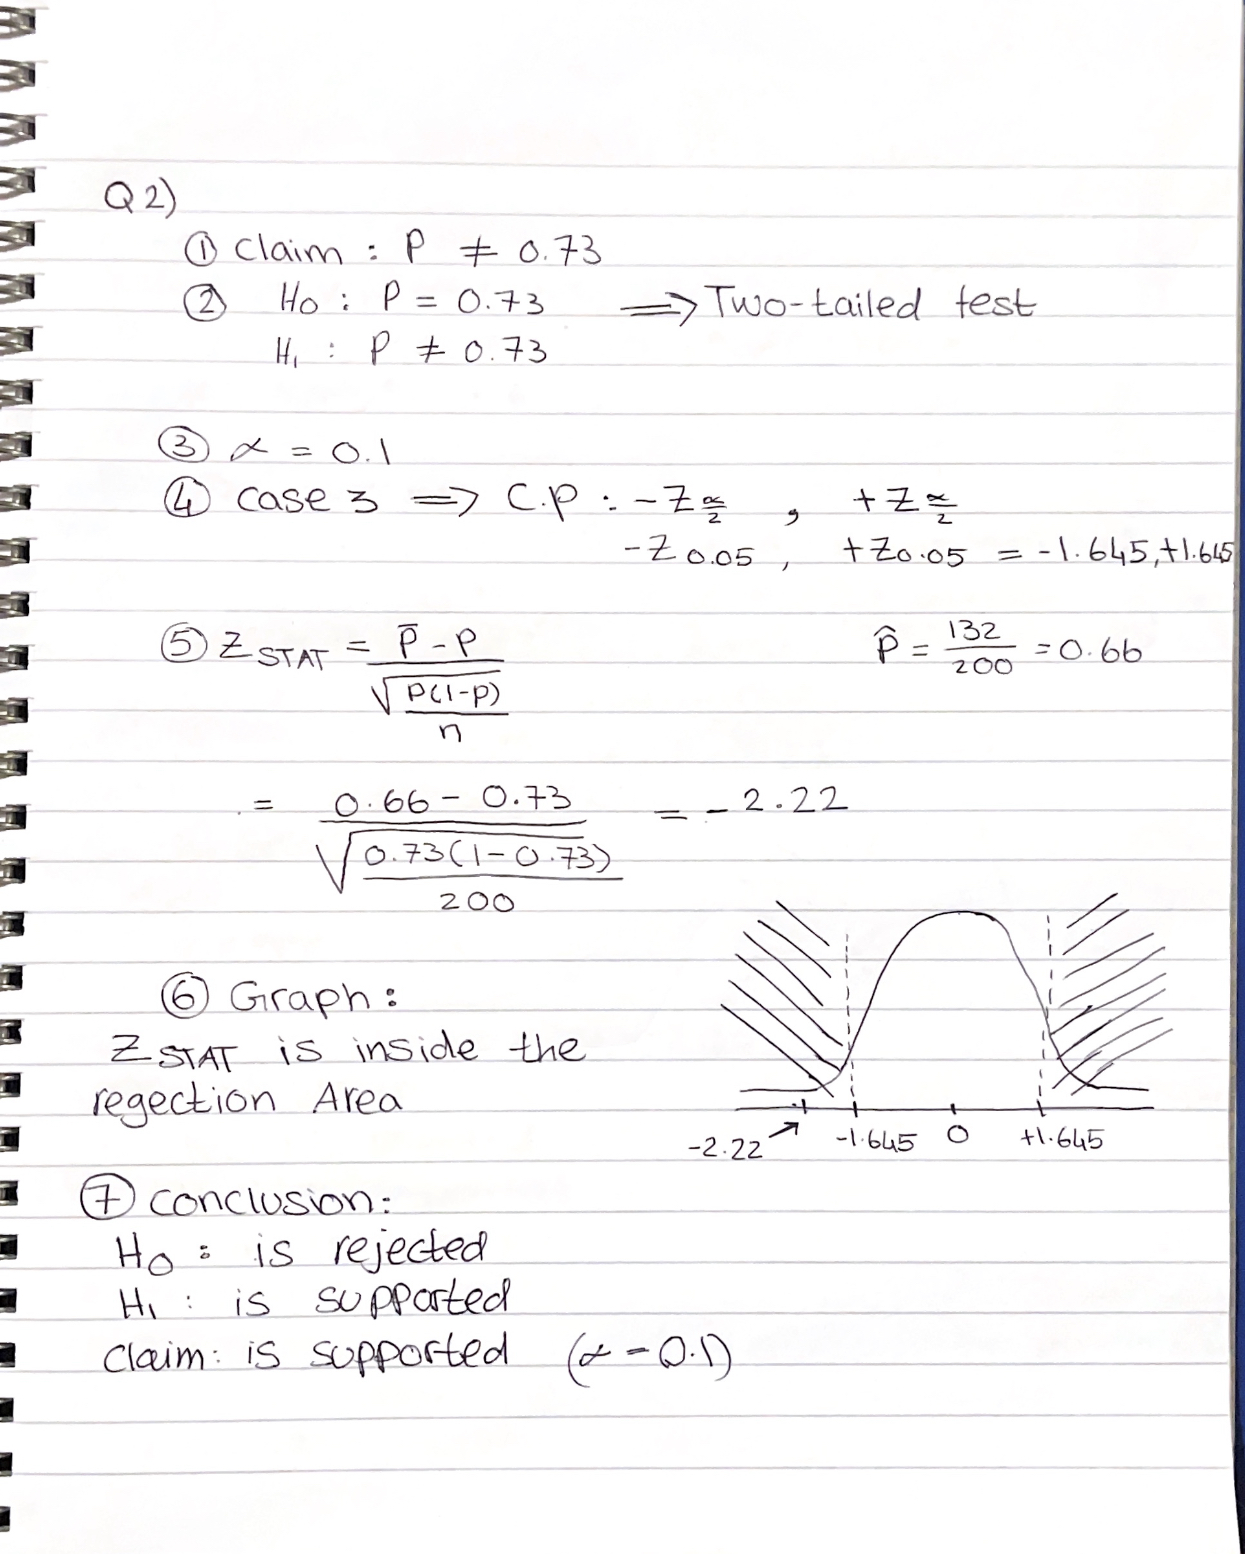 Q2)
① Claim : P ≠ 0.73
② H0 : P = 0.73 ⟹ Two-tailed test
H1 : P ≠ 0.73
③ α = 0.1
④ case 3 ⟹ C.P : -Z α/2 , +Z α/2
-Z 0.05 , +Z0.05 = -1.645,+1.645
⑤ Z STAT = (P̄ - P) / √(P(1-P)/n)
P̂ = 132/200 = 0.66
= (0.66 - 0.73) / √(0.73(1-0.73)/200) = -2.22
⑥ Graph:
Z STAT is inside the
regection Area
-2.22 → -1.645 0 +1.645
⑦ conclusion:
H0 : is rejected
H1 : is supported
claim: is supported (α - 0.1)